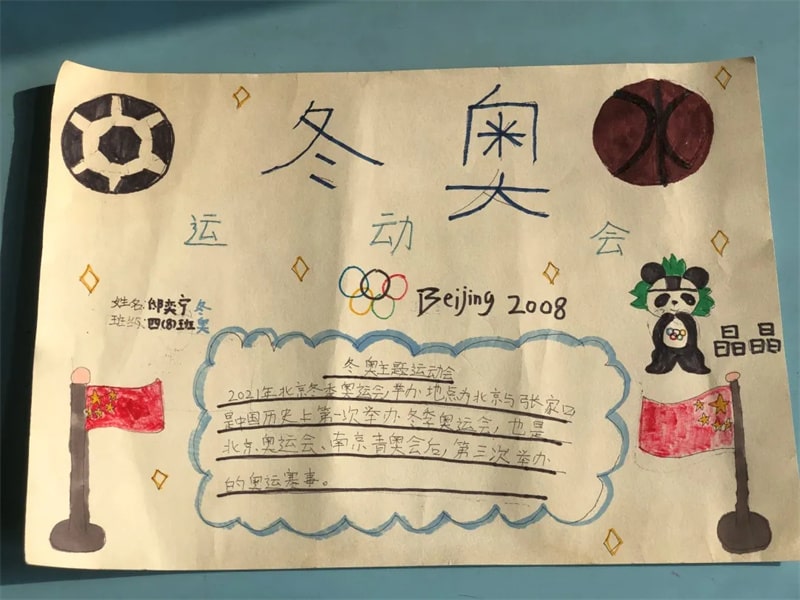 冬奥
运动会
姓名:邱奕宁 冬奥
班级:四(8)班
Beijing 2008
晶晶
冬奥主题运动会
2021年北京冬季奥运会,举办地点为北京与张家口
是中国历史上第一次举办冬季奥运会,也是
北京奥运会、南京青奥会后,第三次举办
的奥运赛事。